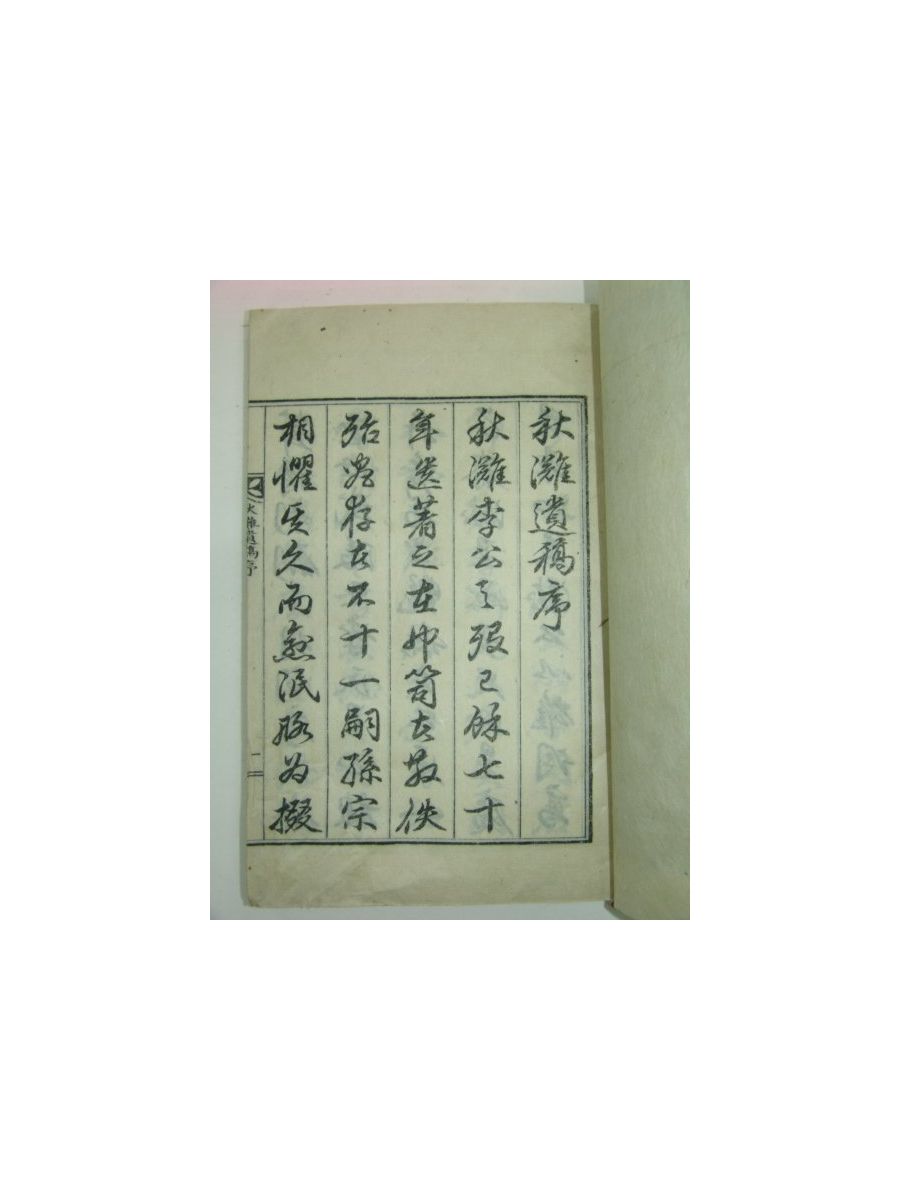 秋灘遺稿序
秋灘李公之歿已餘七十
年遺著之在巾笥者散佚
殆盡存者不十一嗣孫宗
相懼其久而愈泯略為掇
秋灘遺稿序
一